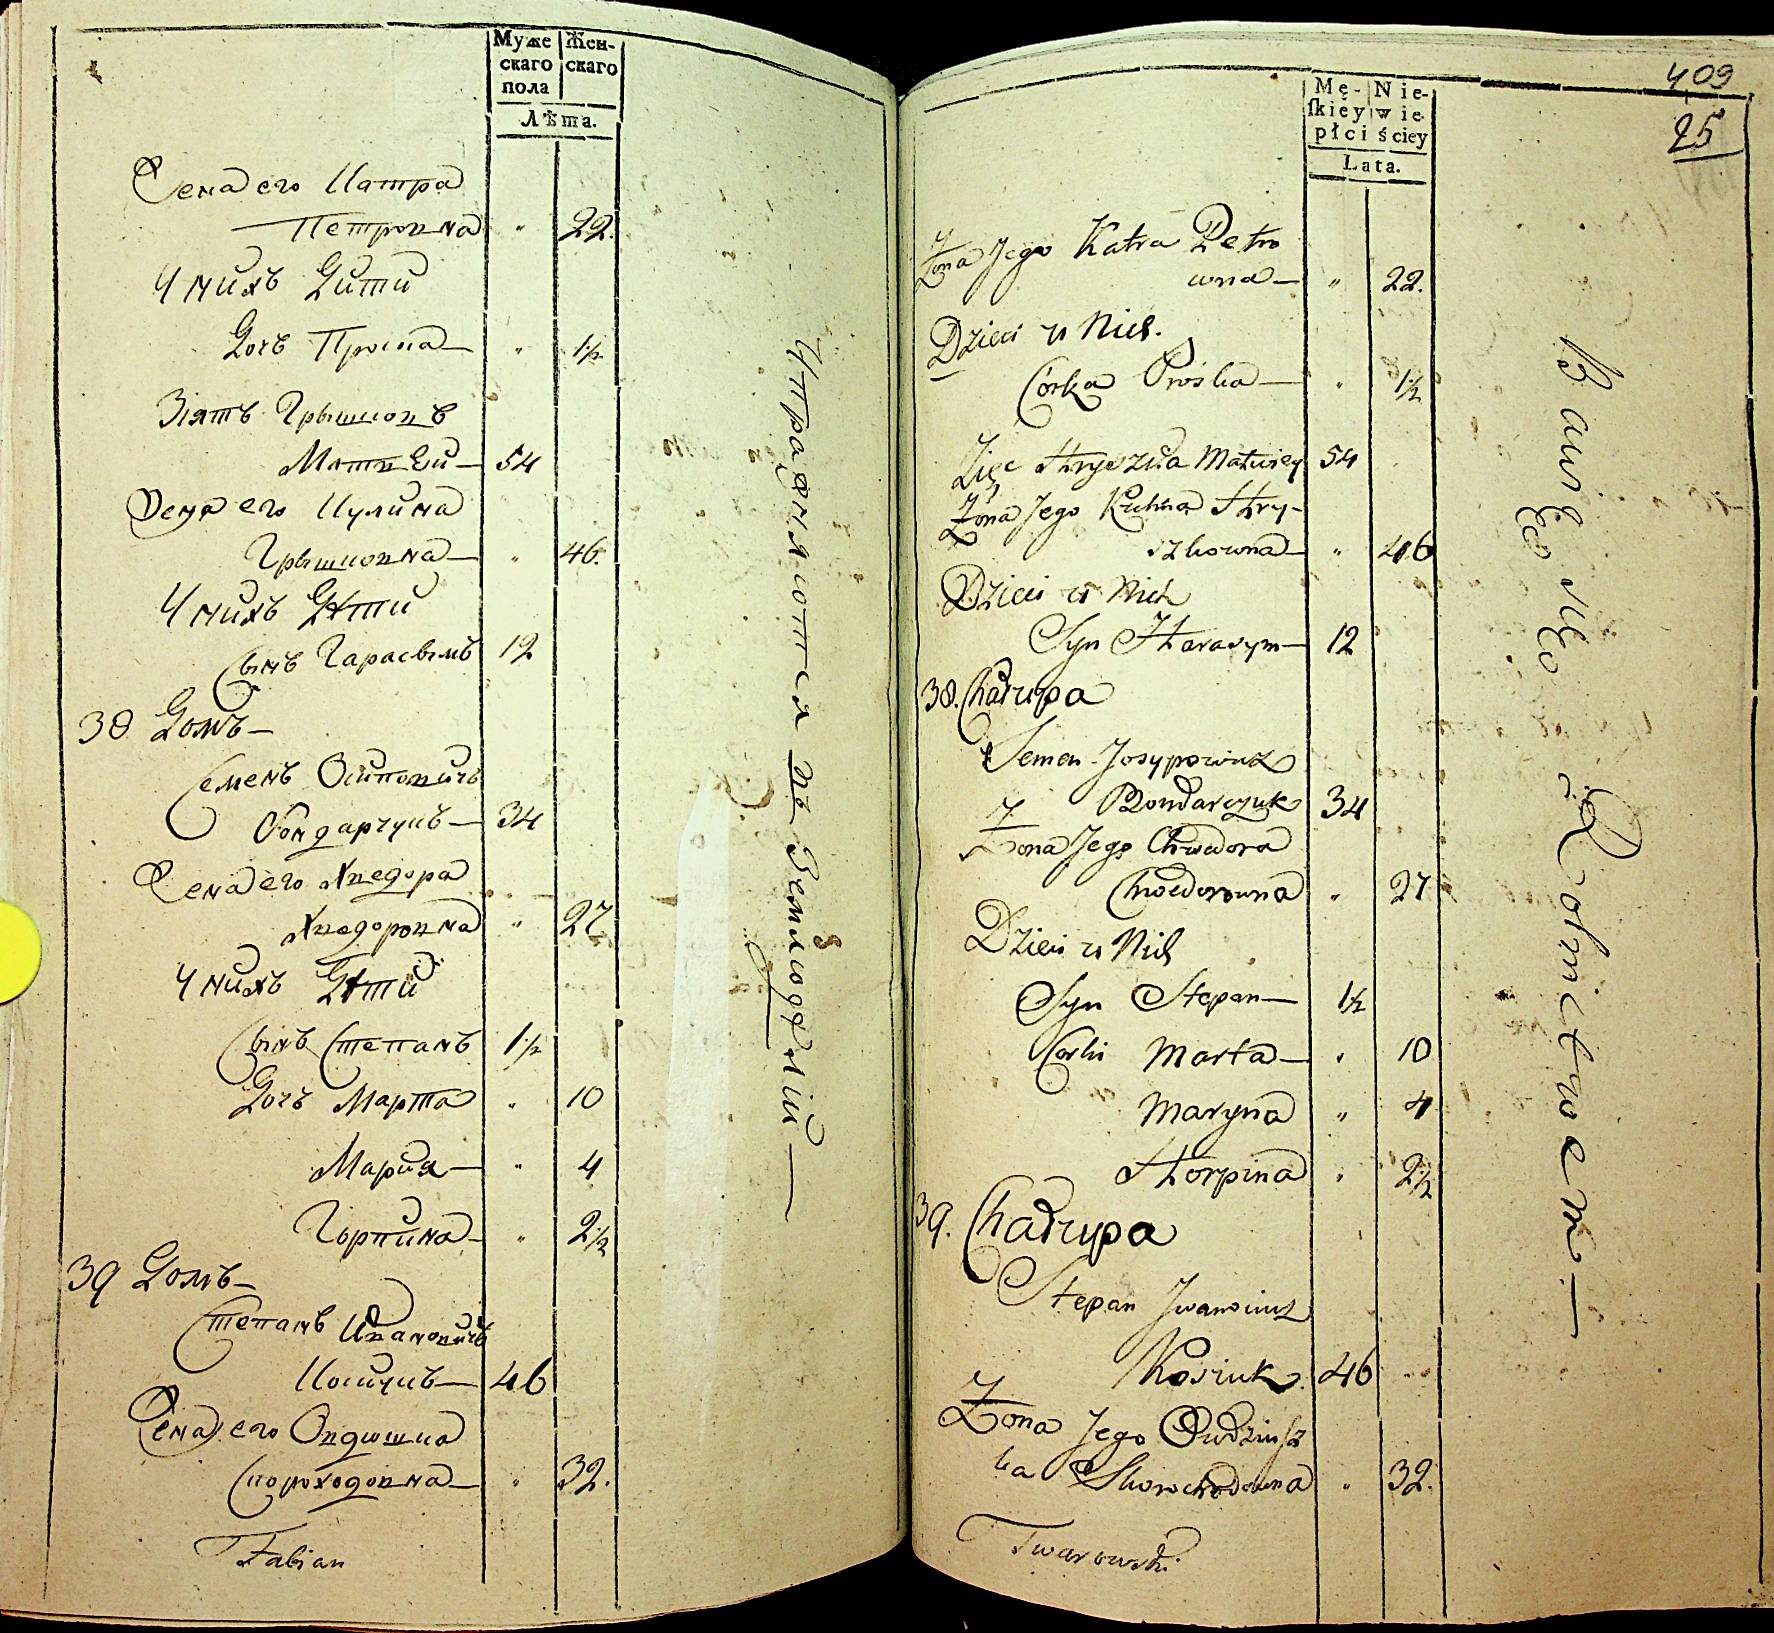 Муже
скаго
пола
Жен-
скаго
Лѣта.
Жена его Катра
Петровна " 22.
У нихъ Дити
Дочь Проска — " 1½
Зіять Грышковъ
Матвей — 54
Жена его Кулина
Грышковна — " 46.
У нихъ Дѣти
Сынъ Гарасымъ 12
38 Домъ —
Семенъ Осиповичъ
Бондарчукъ — 34
Жена его Хведора
Хведоровна " 27
У нихъ Дѣти
Сынъ Степанъ 1½
Дочъ Марта " 10
Мария — " 4
Горпина — " 2½
39 Домъ —
Степанъ Ивановичъ
Косиукъ — 46
Жена его Овдюшка
Скороходовна — " 32.
Fabian
Упражняются въ Земледѣлїи —
409
25
Mę-
skiéy
płci
Nie-
wie-
ściey
Lata.
Żona Jego Katra Petro
wna — " 22.
Dzieci u Nich.
Córka Proska — " 1½
Zięc Hryszka Matwiey 54
Żona Jego Kulina Hry-
szkowna — " 46
Dzieci u Nich
Syn Harasym — 12
38. Chałupa
Semen Josypowicz
Bondarczuk 34
Żona Jego Chwedora
Chwedorowna " 27
Dzieci u Nich
Syn Stepan — 1½
Corki Marta — " 10
Maryna " 4
Horpina " 2½
39. Chałupa
Stepan Iwanowicz
Kosiuk. 46
Żona Jego Owdziusz
ka Skorochodowna " 32.
Twarowski.
Bawią się Rolnictwem —